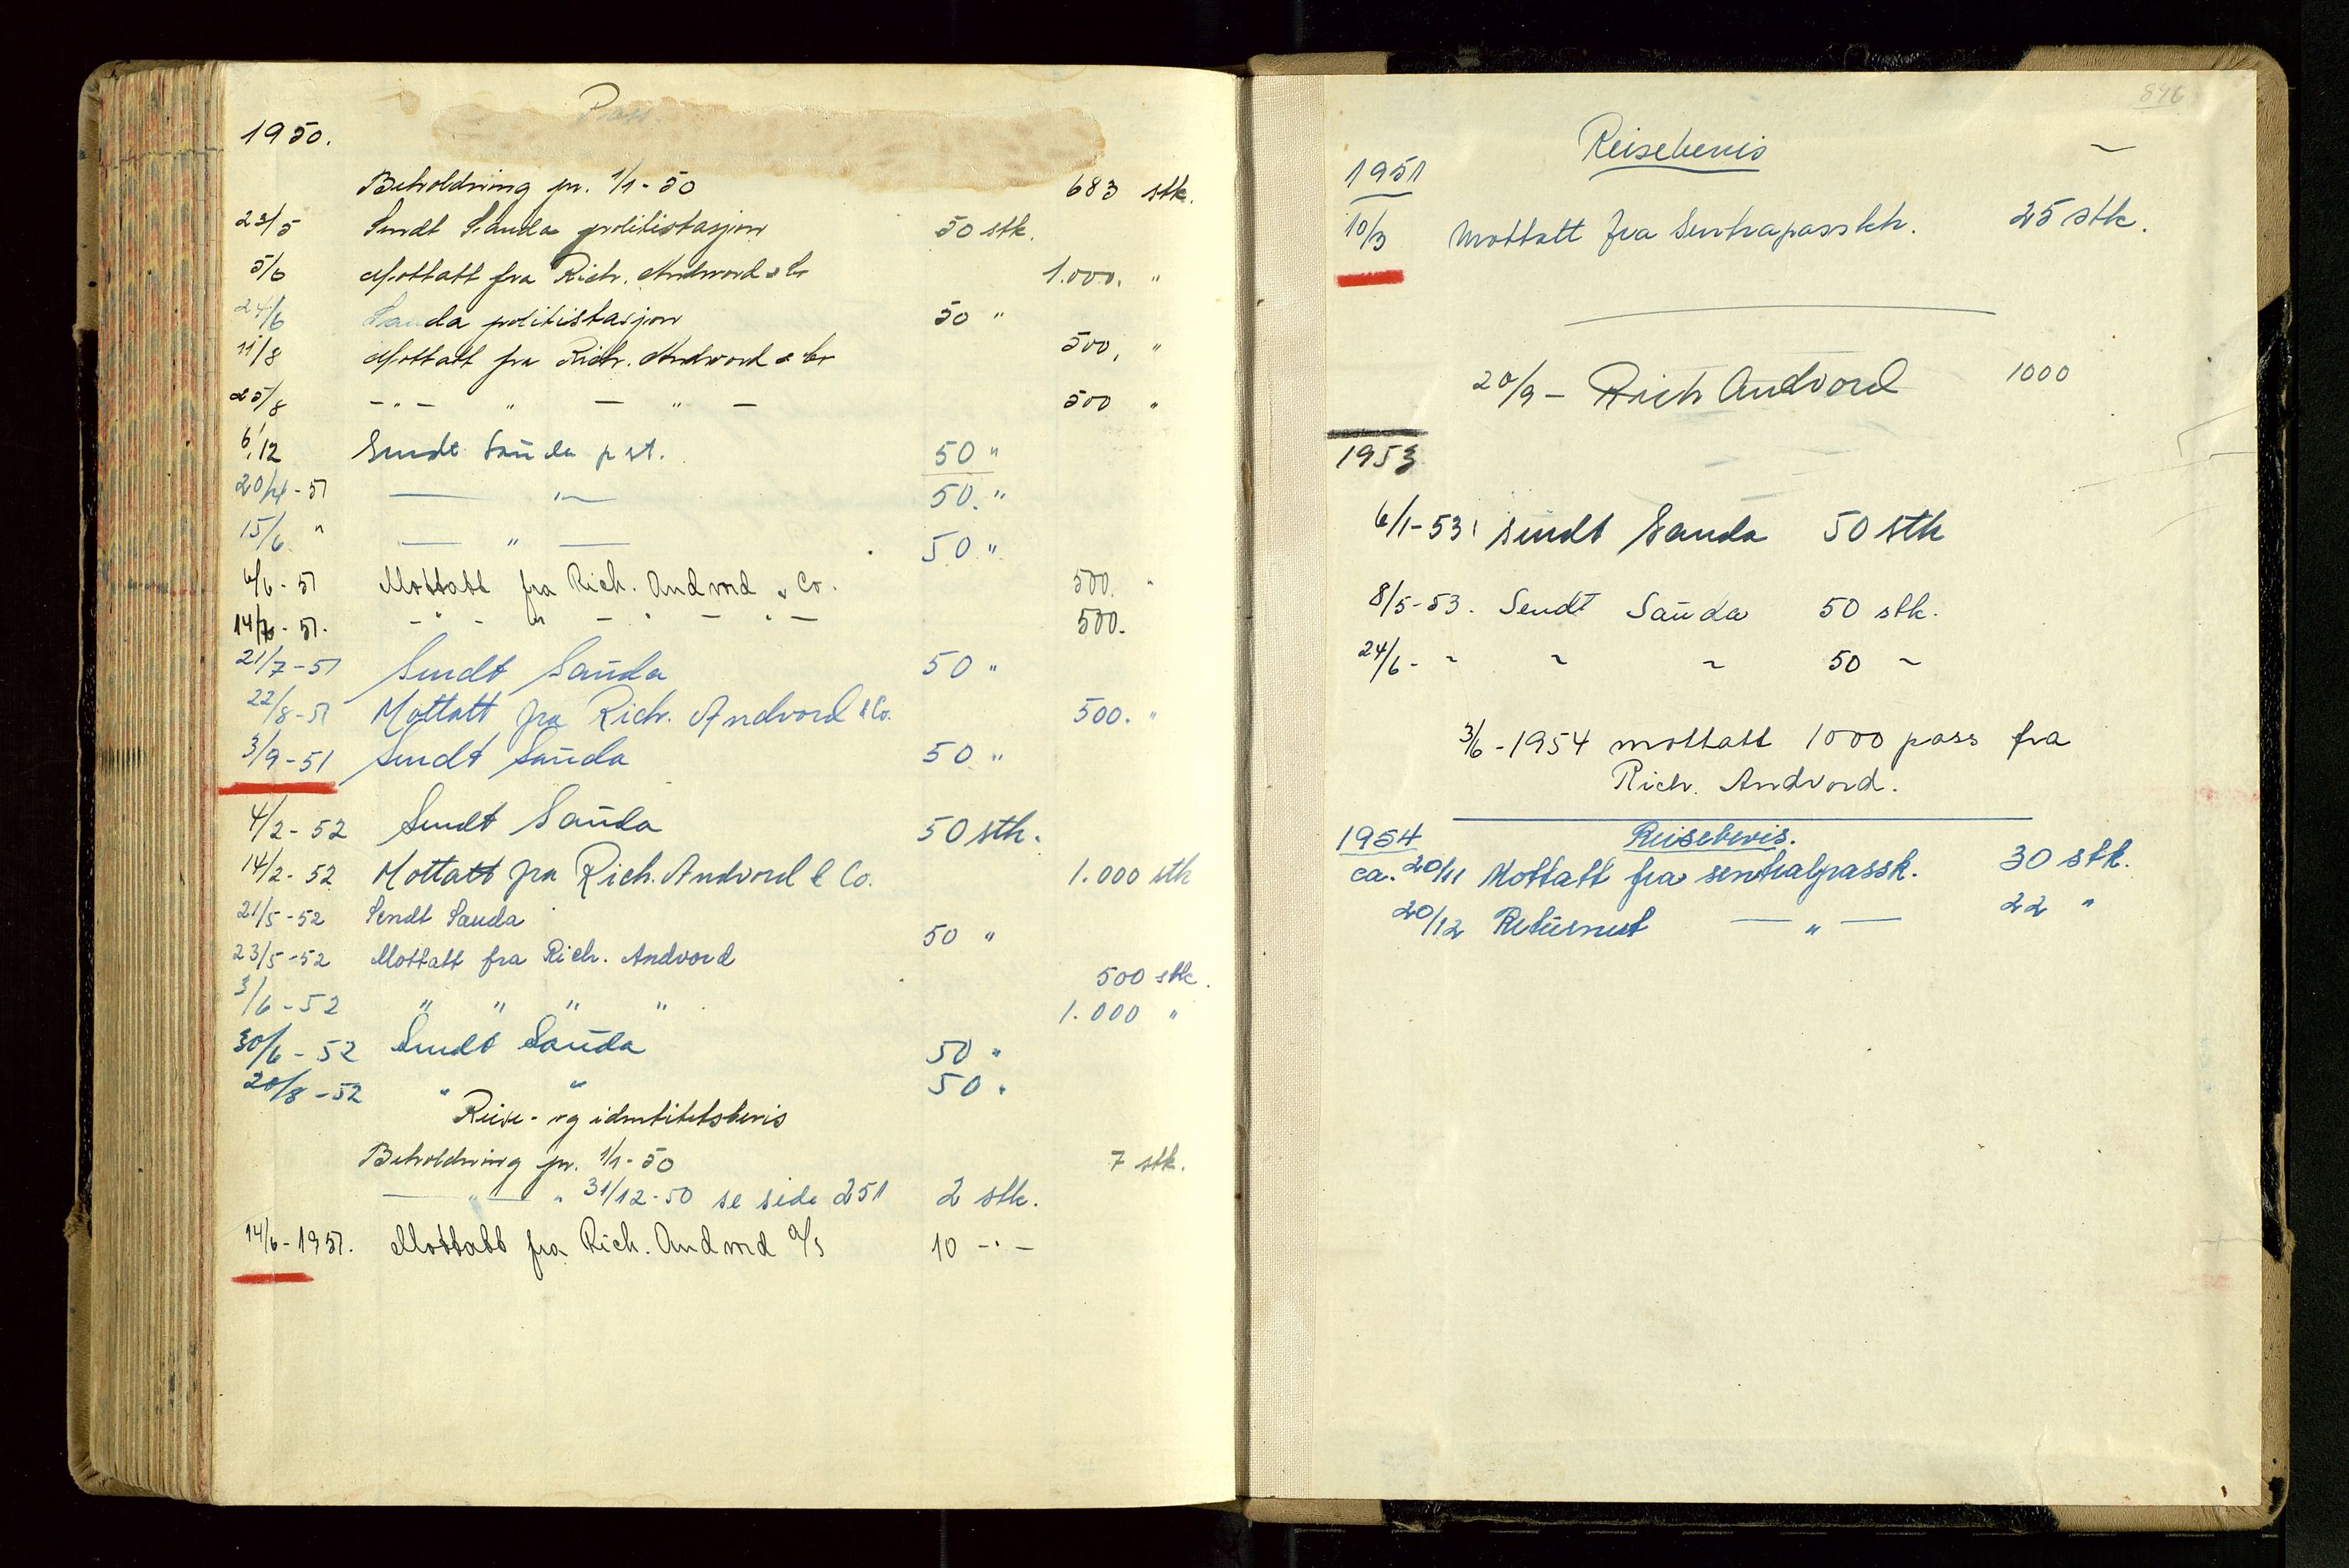 Pass.
1950.
Beholdning pr. 1/1-50 683 stk.
23/5 Sendt Sauda politistasjon 50 stk.
5/6 Mottatt fra Rich. Andvord & Co 1.000. "
24/6 Sauda politistasjon 50 "
11/8 Mottatt fra Rich. Andvord & Co 500, "
25/8 - " - " - " - 500 "
6/12 Sendt Sauda p.st. 50 "
20/4-51 — " — 50. "
15/6 " — " — 50 "
6/6-51 Mottatt fra Rich. Andvord & Co. 500. "
14/7-51. - " - - " - " - 500.
21/7-51 Sendt Sauda 50 "
22/8-51 Mottatt fra Rich. Andvord & Co. 500. "
3/9-51 Sendt Sauda 50 "
4/2-52 Sendt Sauda 50 stk.
14/2-52 Mottatt fra Rich. Andvord & Co. 1.000 stk
21/5-52 Sendt Sauda 50 "
23/5-52 Mottatt fra Rich. Andvord 500 stk.
3/6-52 " " " " 1.000 "
30/6-52 Sendt Sauda 50 "
20/8-52 " " 50 "
Reise- og identitetsbevis
Beholdning pr. 1/1-50 7 stk.
— " — " 31/12-50 se side 251 2 stk.
14/6-1951. Mottatt fra Rich. Andvord A/S 10 - " -
896
Reisebevis ~
1951
10/3 Mottatt fra Sentrapassktr. 25 stk.
20/9 - Rich Andvord 1000
1953
6/1-53: Sendt Sauda 50 stk
8/5-53. Sendt Sauda 50 stk.
24/6- ~ ~ ~ 50 ~
3/6-1954 mottatt 1000 pass fra
Rich. Andvord.
1954 Reisebevis.
ca. 20/11 Mottatt fra sentralpassk. 30 stk.
20/12 Returnert — " — 22 "